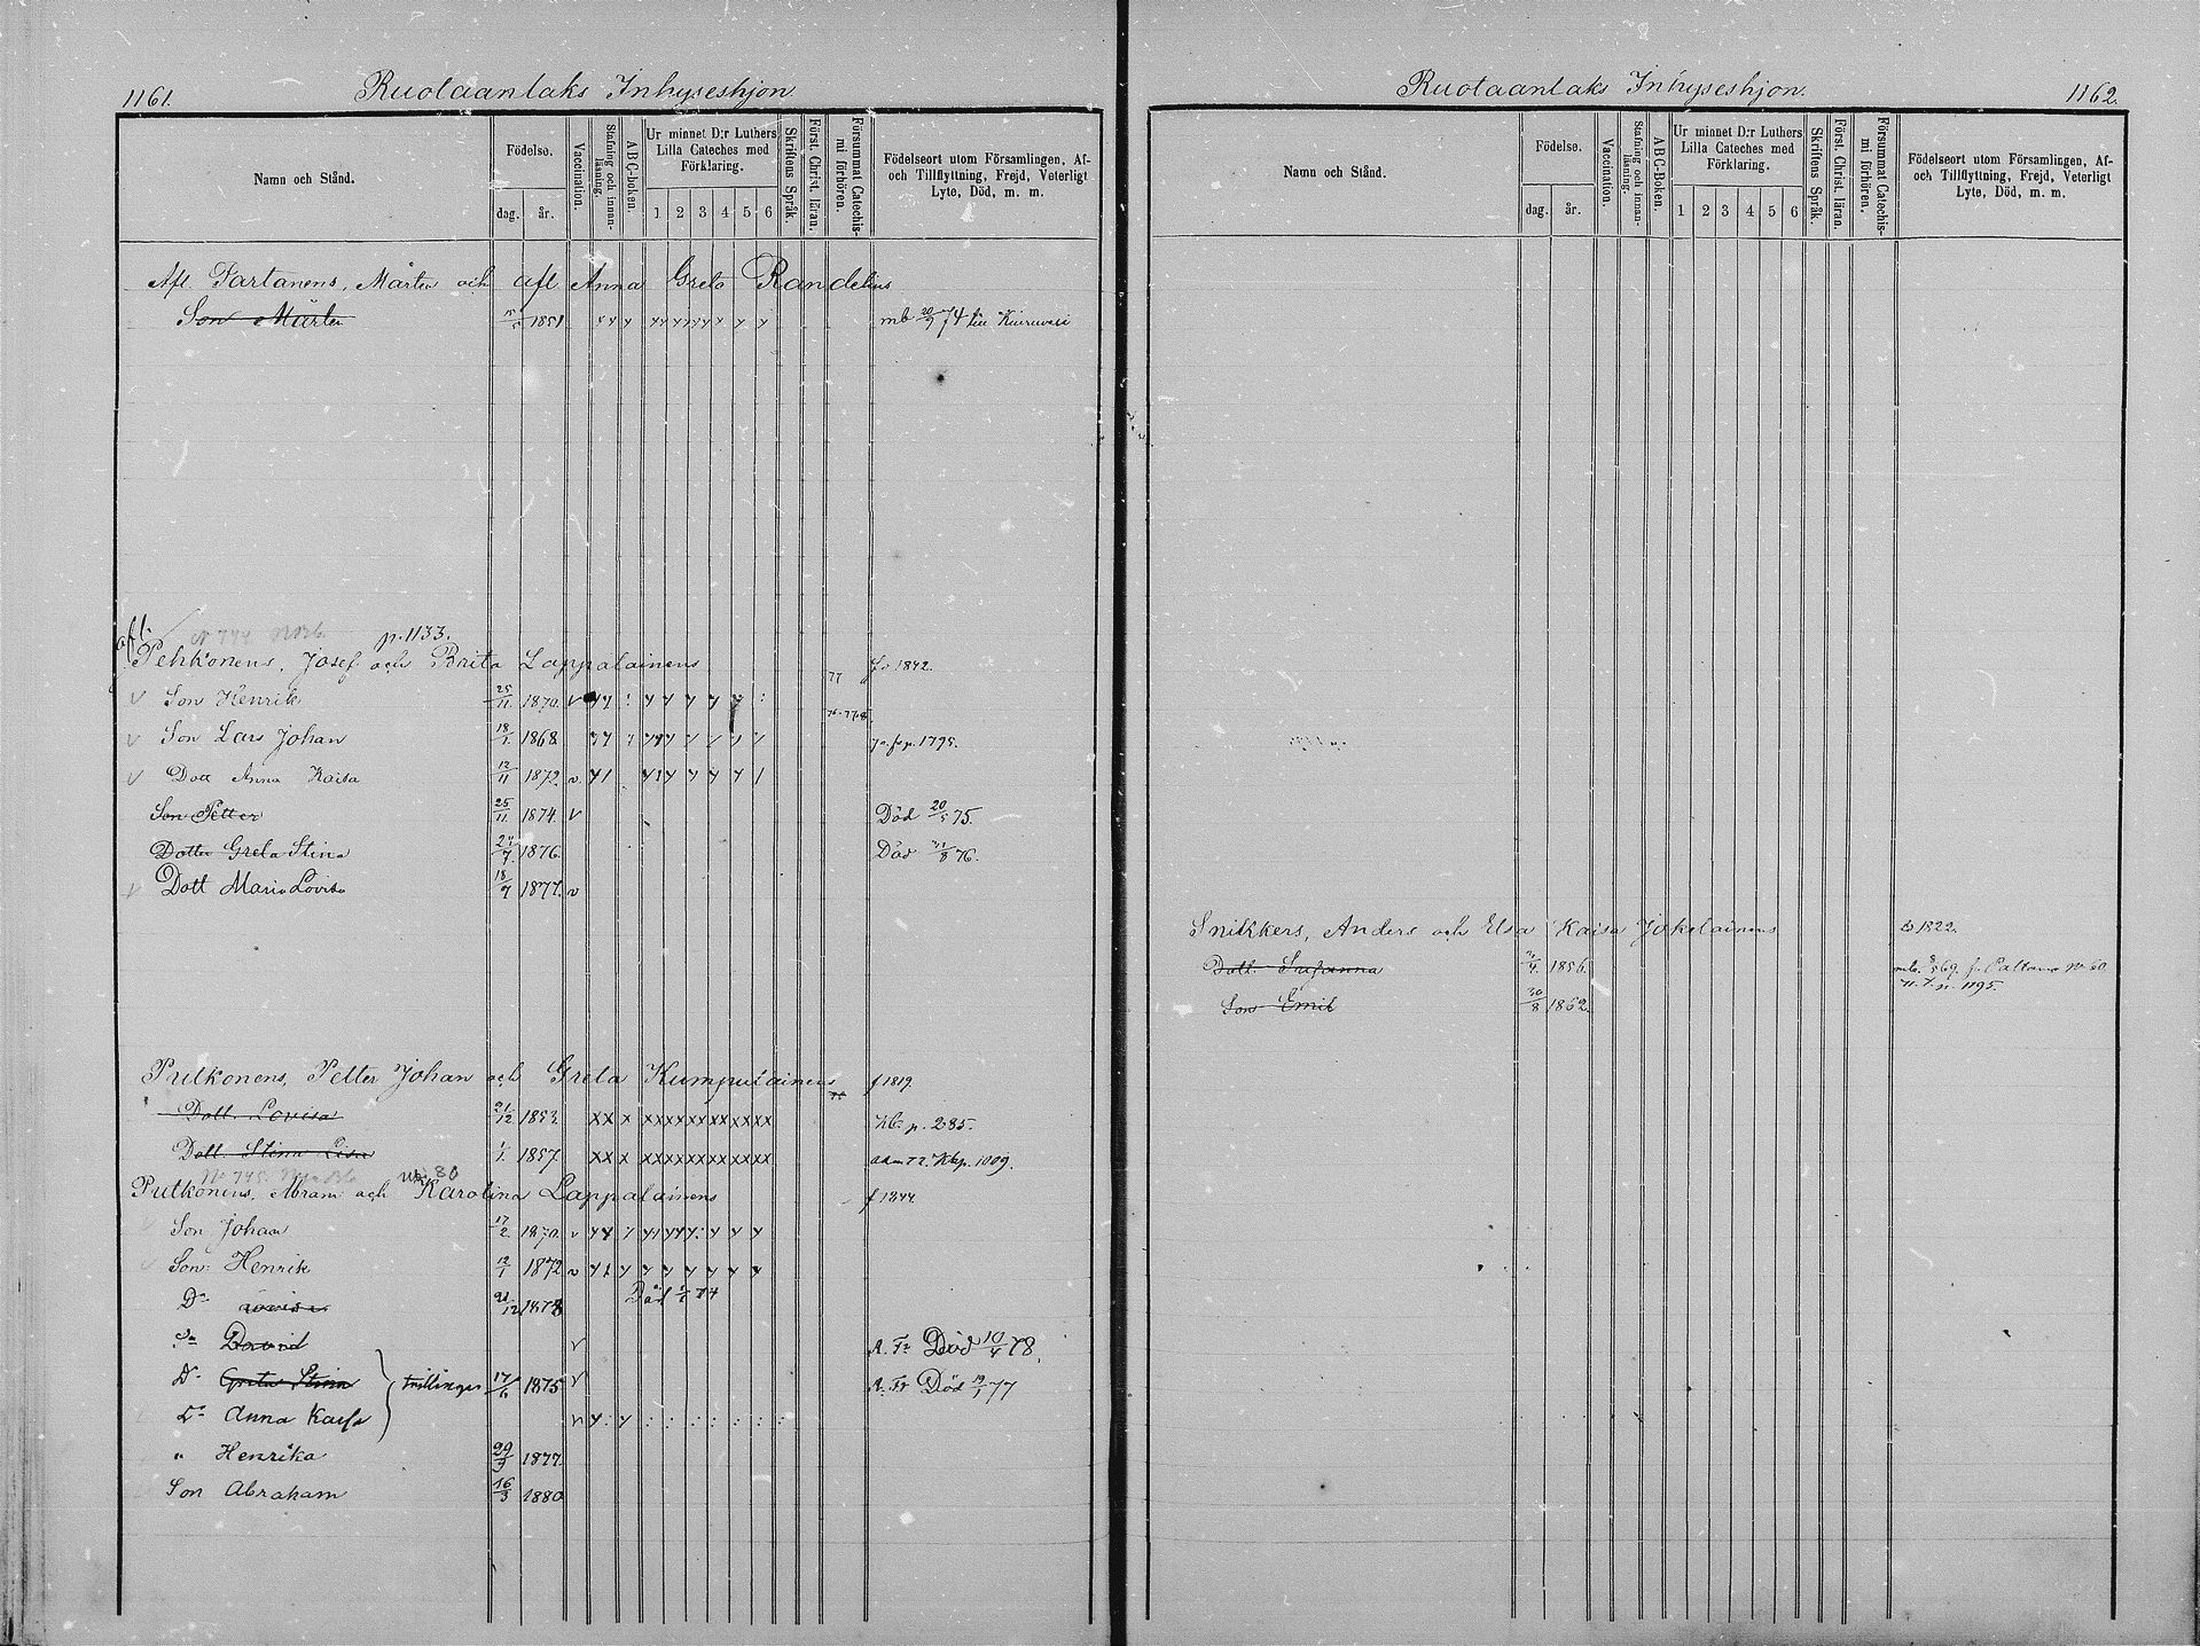 1161.
Ruotaanlaks Inhyseshjon.
Namn och Stånd.
Födelse.
dag. år.
Vaccination.
Stafning och innan-läsning.
ABC-boken.
Ur minnet D:r Luthers Lilla Cateches med Förklaring.
1 2 3 4 5 6
Skriftens Språk.
Först. Christ. läran.
Försummat Catechis-mi förhören.
Födelseort utom Församlingen, Af- och Tillflyttning, Frejd, Veterligt Lyte, Död, m. m.
Afl. Partanens, Mårten och afl Anna Greta Randelins
Son Mårten 15/5 1851 mb 20/9 74 till Kiuruvesi
afl. p. 1133.
Pehkonens, Josef och Brita Lappalainens f. 1842.
77
Son Henrik 25/11 1870. v
Son Lars Johan 18/1 1868 p. 1795.
Dott Anna Kaisa 12/11 1872. v
Son Petter 25/11 1874. v Död 20/5 75.
Dotter Greta Stina 24/7 1876. Död 31/8 76.
Dott Maria Lovisa 18/9 1877. v
Putkonens, Petter Johan och Greta Kumpulainens f 1819.
Dott. Lovisa 21/12 1853. xx x xxxxxxxxxxxx Kb. p. 285.
Dott. Stina Lisa 1/1 1857. xx x xxxxxxxxxxxx adm 72. Kbp. 1009.
No 745. 80
Putkonens, Abram och Karolina Lappalainens f 1844.
Son Johan 17/2 1870. v
Son Henrik 12/1 1872 v
Dr Lovisa 21/12 1873 Död 74
Sn David v Död 10/4 78.
Dr Greta Stina } trillingar 17/6 1875 v Död 19/1 77
Dr Anna Kaisa v
" Henrika 29/9 1877.
Son Abraham 16/3 1880
Ruotaanlaks Inhyseshjon.
1162.
Namn och Stånd.
Födelse.
dag. år.
Vaccination.
Stafning och innan-läsning.
ABC-boken.
Ur minnet D:r Luthers Lilla Cateches med Förklaring.
1 2 3 4 5 6
Skriftens Språk.
Först. Christ. läran.
Försummat Catechis-mi förhören.
Födelseort utom Församlingen, Af- och Tillflyttning, Frejd, Veterligt Lyte, Död, m. m.
Snikkers, Anders och Elsa Kaisa Jokelainens 1822.
Dott. Susanna 1856. mb. 69. Paltamo No 60.
1195.
Son Emil 30/8 1862.